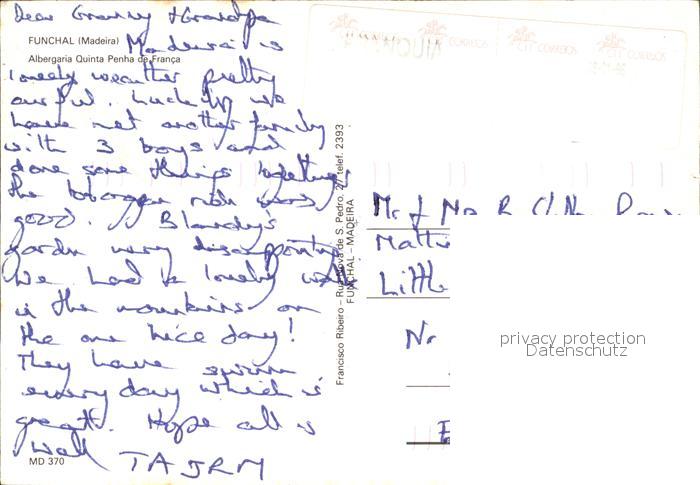 Dear Granny & Grandpa
FUNCHAL (Madeira)
Madeira is
Albergaria Quinta Penha de França
lovely weather pretty
awful. Luckily we
have met another family
with 3 boys and
done some things together,
the toboggan ride was
good. Blandy's
garden very disappointing
We had a lovely walk
in the mountains on
the one nice day!
They have swum
every day which is
great. Hope all is
well
MD 370
Francisco Ribeiro – Rua Nova de S. Pedro, telef. 2393
FUNCHAL – MADEIRA
CTT CORREIOS
CTT CORREIOS
Mr & Mrs R
Little
Nr
privacy protection
Datenschutz